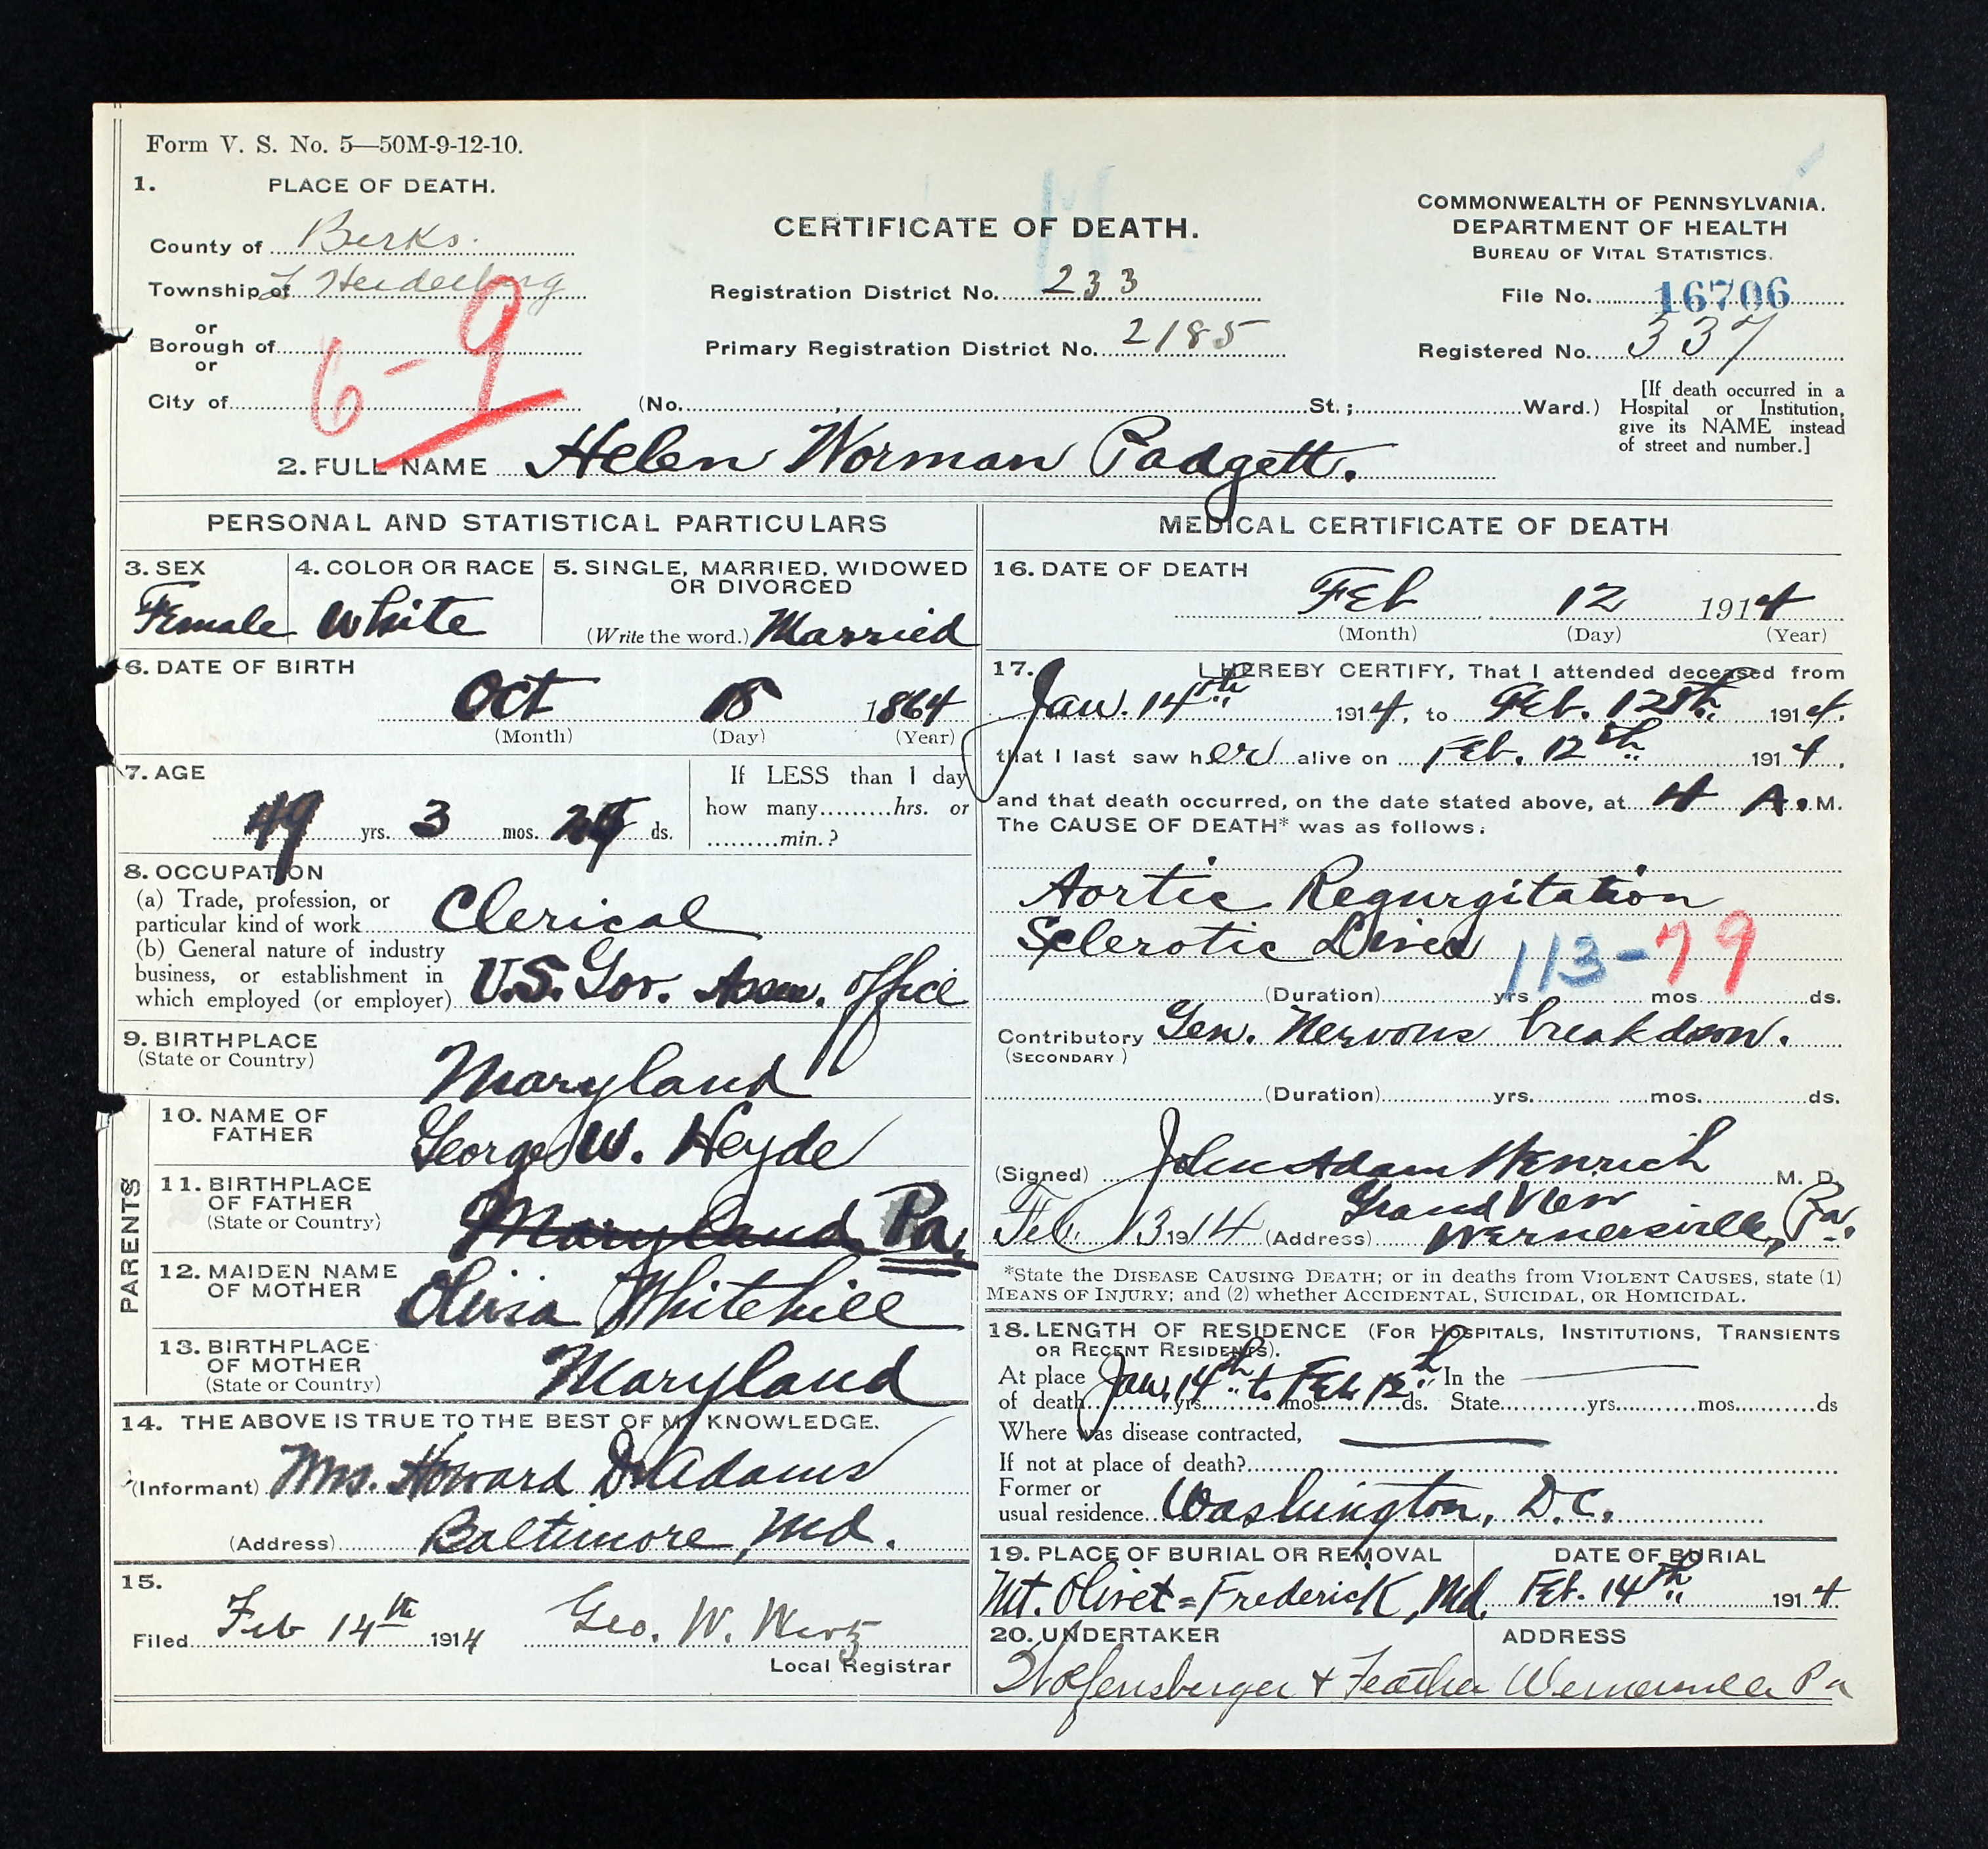 Form V. S. No. 5—50M-9-12-10.
1. PLACE OF DEATH.
County of Berks.
Township of L Heidelberg
or
Borough of
or
City of
6-9
CERTIFICATE OF DEATH.
Registration District No. 233
Primary Registration District No. 2185
(No. , St.; Ward.)
COMMONWEALTH OF PENNSYLVANIA.
DEPARTMENT OF HEALTH
BUREAU OF VITAL STATISTICS.
File No. 16706
Registered No. 337
[If death occurred in a
Hospital or Institution,
give its NAME instead
of street and number.]
2. FULL NAME Helen Worman Padgett.
PERSONAL AND STATISTICAL PARTICULARS
3. SEX
Female
4. COLOR OR RACE
White
5. SINGLE, MARRIED, WIDOWED
OR DIVORCED
(Write the word.) Married
6. DATE OF BIRTH
Oct 18 1864
(Month) (Day) (Year)
7. AGE
49 yrs. 3 mos. ds.
If LESS than 1 day
how many hrs. or
min.?
8. OCCUPATION
(a) Trade, profession, or
particular kind of work Clerical
(b) General nature of industry
business, or establishment in
which employed (or employer) U.S. Gov. office
9. BIRTHPLACE
(State or Country)
Maryland
PARENTS
10. NAME OF
FATHER
George W. Heyde
11. BIRTHPLACE
OF FATHER
(State or Country)
Maryland Pa.
12. MAIDEN NAME
OF MOTHER
Whitehill
13. BIRTHPLACE
OF MOTHER
(State or Country)
Maryland
14. THE ABOVE IS TRUE TO THE BEST OF MY KNOWLEDGE.
(Informant) Mrs. Howard D. Adams
(Address) Baltimore, Md.
15.
Filed Feb 14th 1914 Geo. W. Werz
Local Registrar
MEDICAL CERTIFICATE OF DEATH
16. DATE OF DEATH
Feb 12 1914
(Month) (Day) (Year)
17. I HEREBY CERTIFY, That I attended deceased from
Jan. 14th 1914, to Feb. 12th 1914.
that I last saw her alive on Feb. 12th 1914.
and that death occurred, on the date stated above, at 4 A.M.
The CAUSE OF DEATH* was as follows:
Aortic Regurgitation
Sclerotic Liver 113-79
(Duration) yrs. mos. ds.
Contributory Gen. Nervous breakdown.
(SECONDARY)
(Duration) yrs. mos. ds.
(Signed) John Adam Henrich M. D.
Grand View
Feb 13 1914 (Address) Wernersville, Pa.
*State the DISEASE CAUSING DEATH; or in deaths from VIOLENT CAUSES, state (1)
MEANS OF INJURY; and (2) whether ACCIDENTAL, SUICIDAL, OR HOMICIDAL.
18. LENGTH OF RESIDENCE (FOR HOSPITALS, INSTITUTIONS, TRANSIENTS
OR RECENT RESIDENTS).
At place In the
of death Jan. 14th to Feb 12th yrs. mos. ds. State yrs. mos. ds
Where was disease contracted,
If not at place of death?
Former or
usual residence Washington, D.C.
19. PLACE OF BURIAL OR REMOVAL
Mt. Olivet = Frederick, Md.
DATE OF BURIAL
Feb. 14th 1914
20. UNDERTAKER
Wolfensberger & Feather
ADDRESS
Wernersville Pa